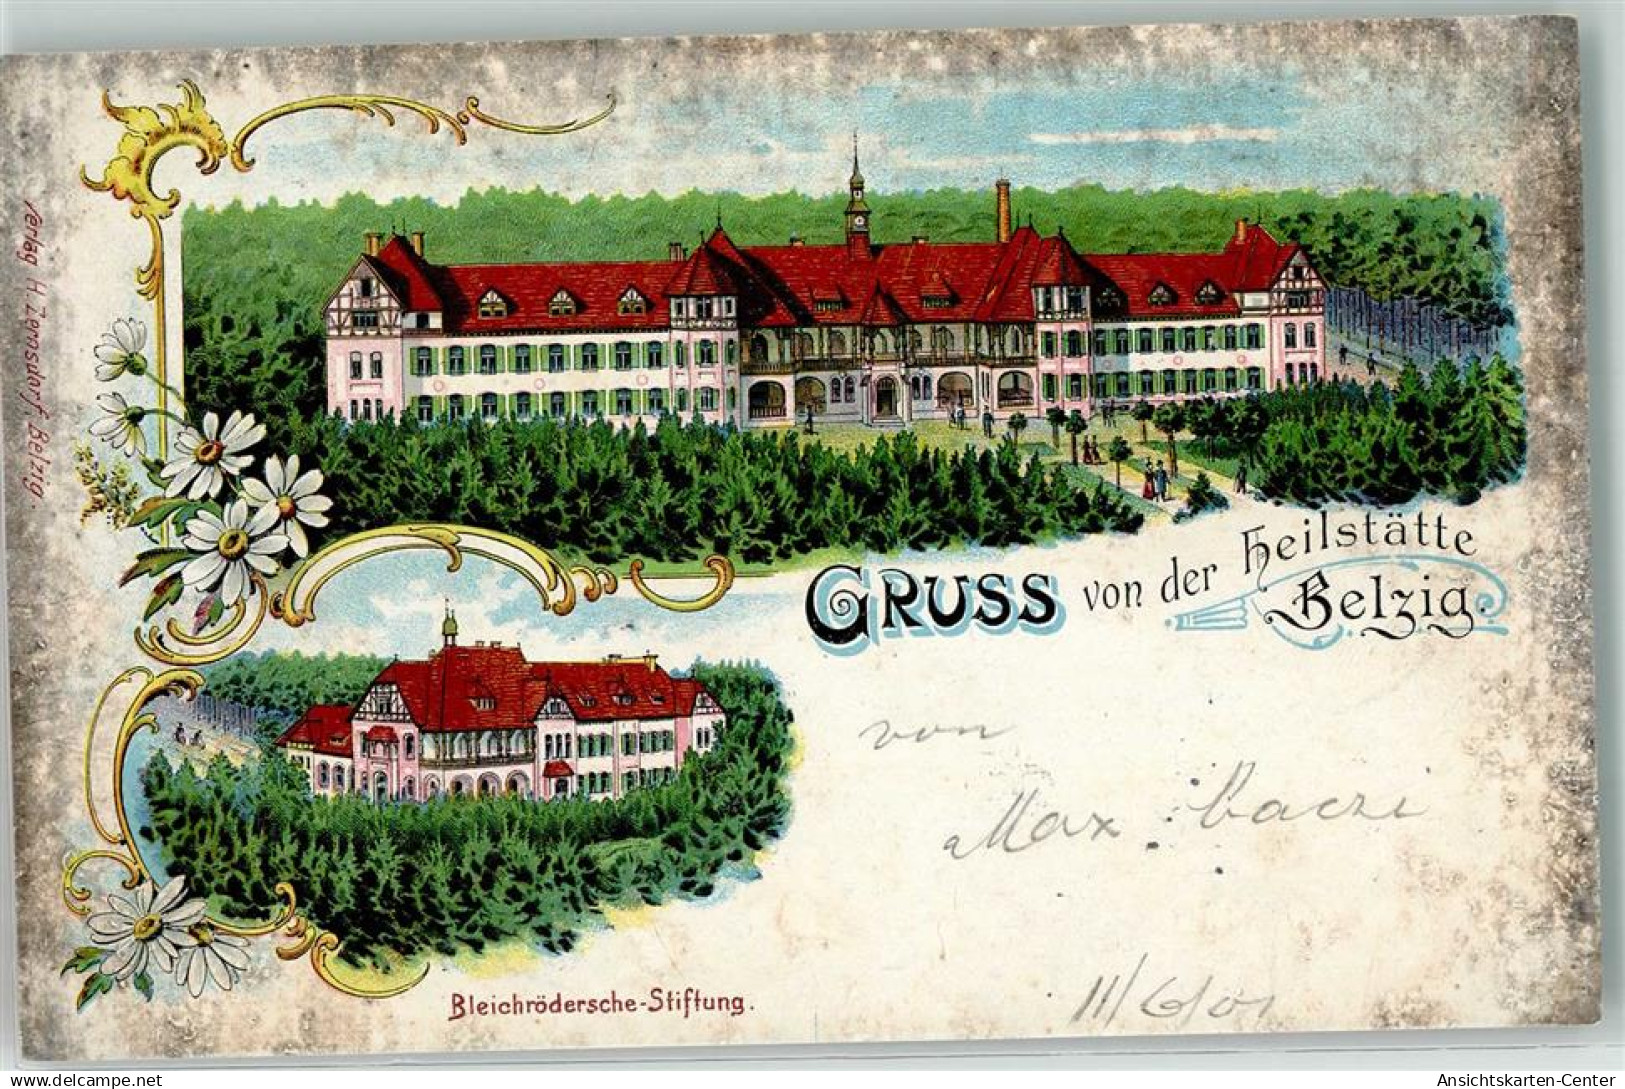 Verlag H. Zernsdorf, Belzig.
GRUSS von der Heilstätte
Belzig.
von
Max
11/6/01
Bleichrödersche-Stiftung.
www.delcampe.net
Ansichtskarten-Center